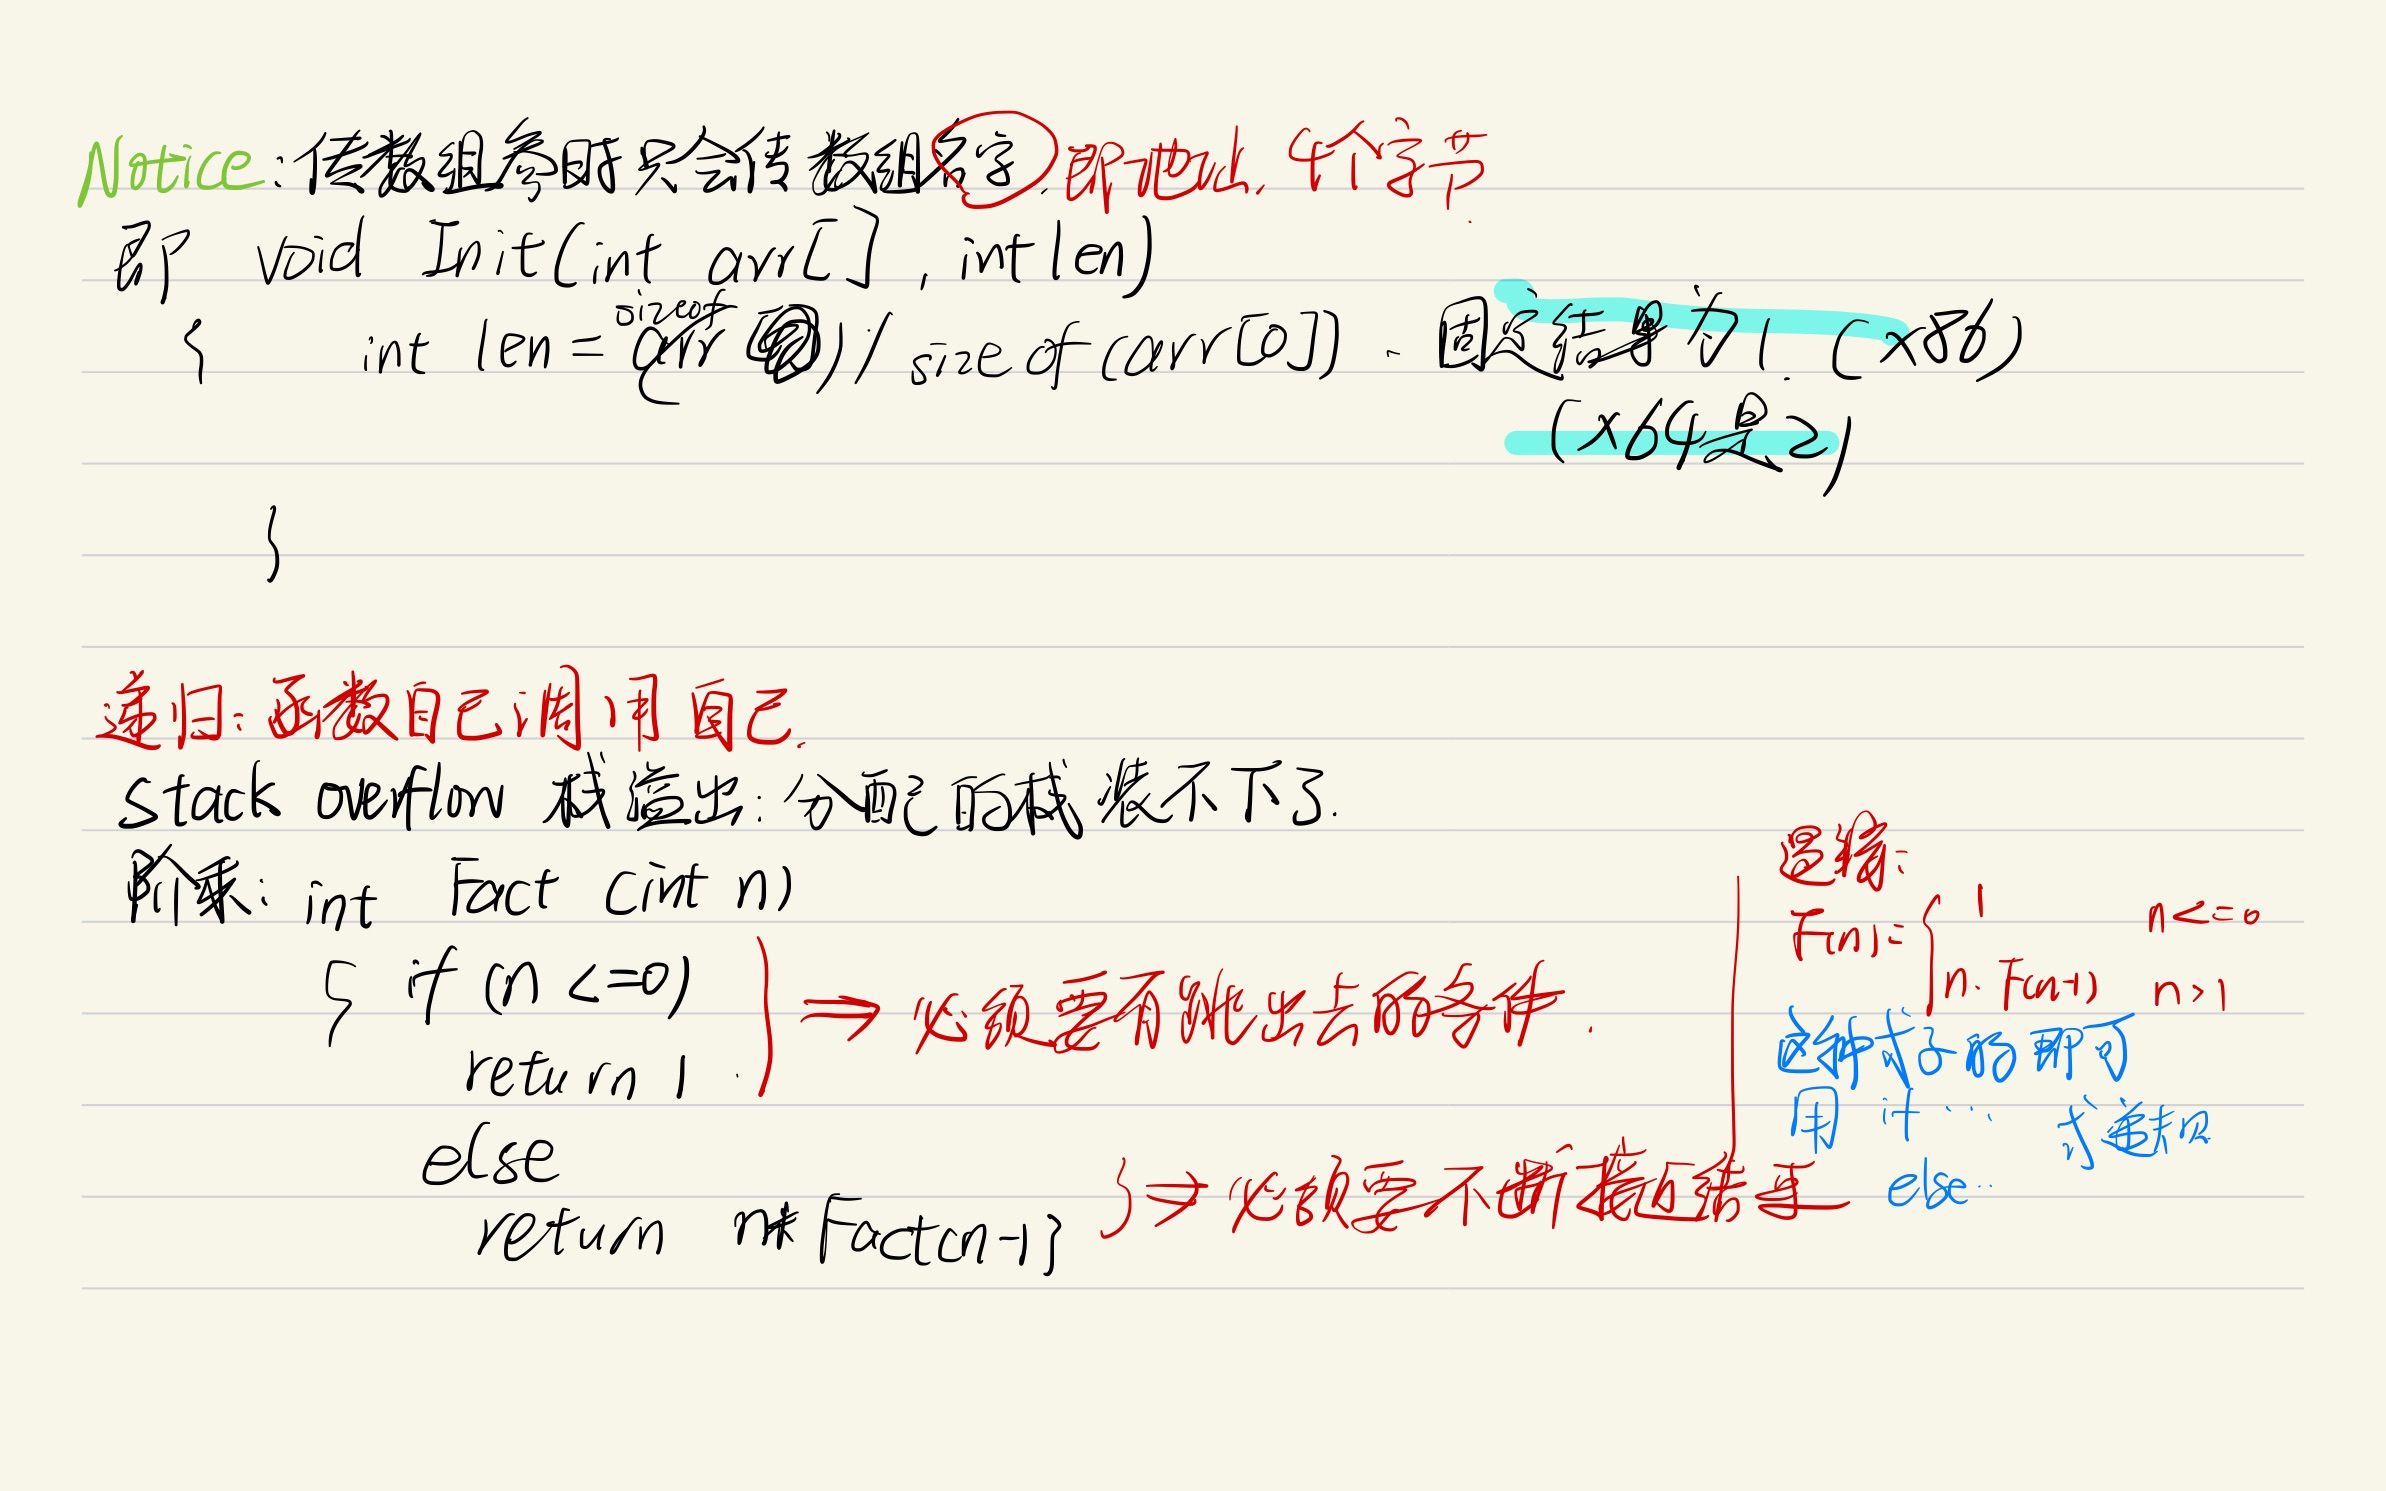 Notice:传数组参时只会传数组名字,即地址.4个字节.
即 void Init(int arr[],int len)
sizeof
{ int len=(arr)/sizeof(arr[0]). 固定结果为1.(x86)
(x64是2)
}
递归:函数自己调用自己.
Stack overflow 栈溢出:分配的栈装不下了.
阶乘: int Fact (int n)
{ if (n <=0)
return 1
} ⇒ 必须要有跳出去的条件.
else
return n*Fact(n-1}
} → 必须要不断接近结果
逻辑:
F(n)={ 1 n<=0
n.F(n-1) n>1
这种式子的即可
用 if … 求递归
else…